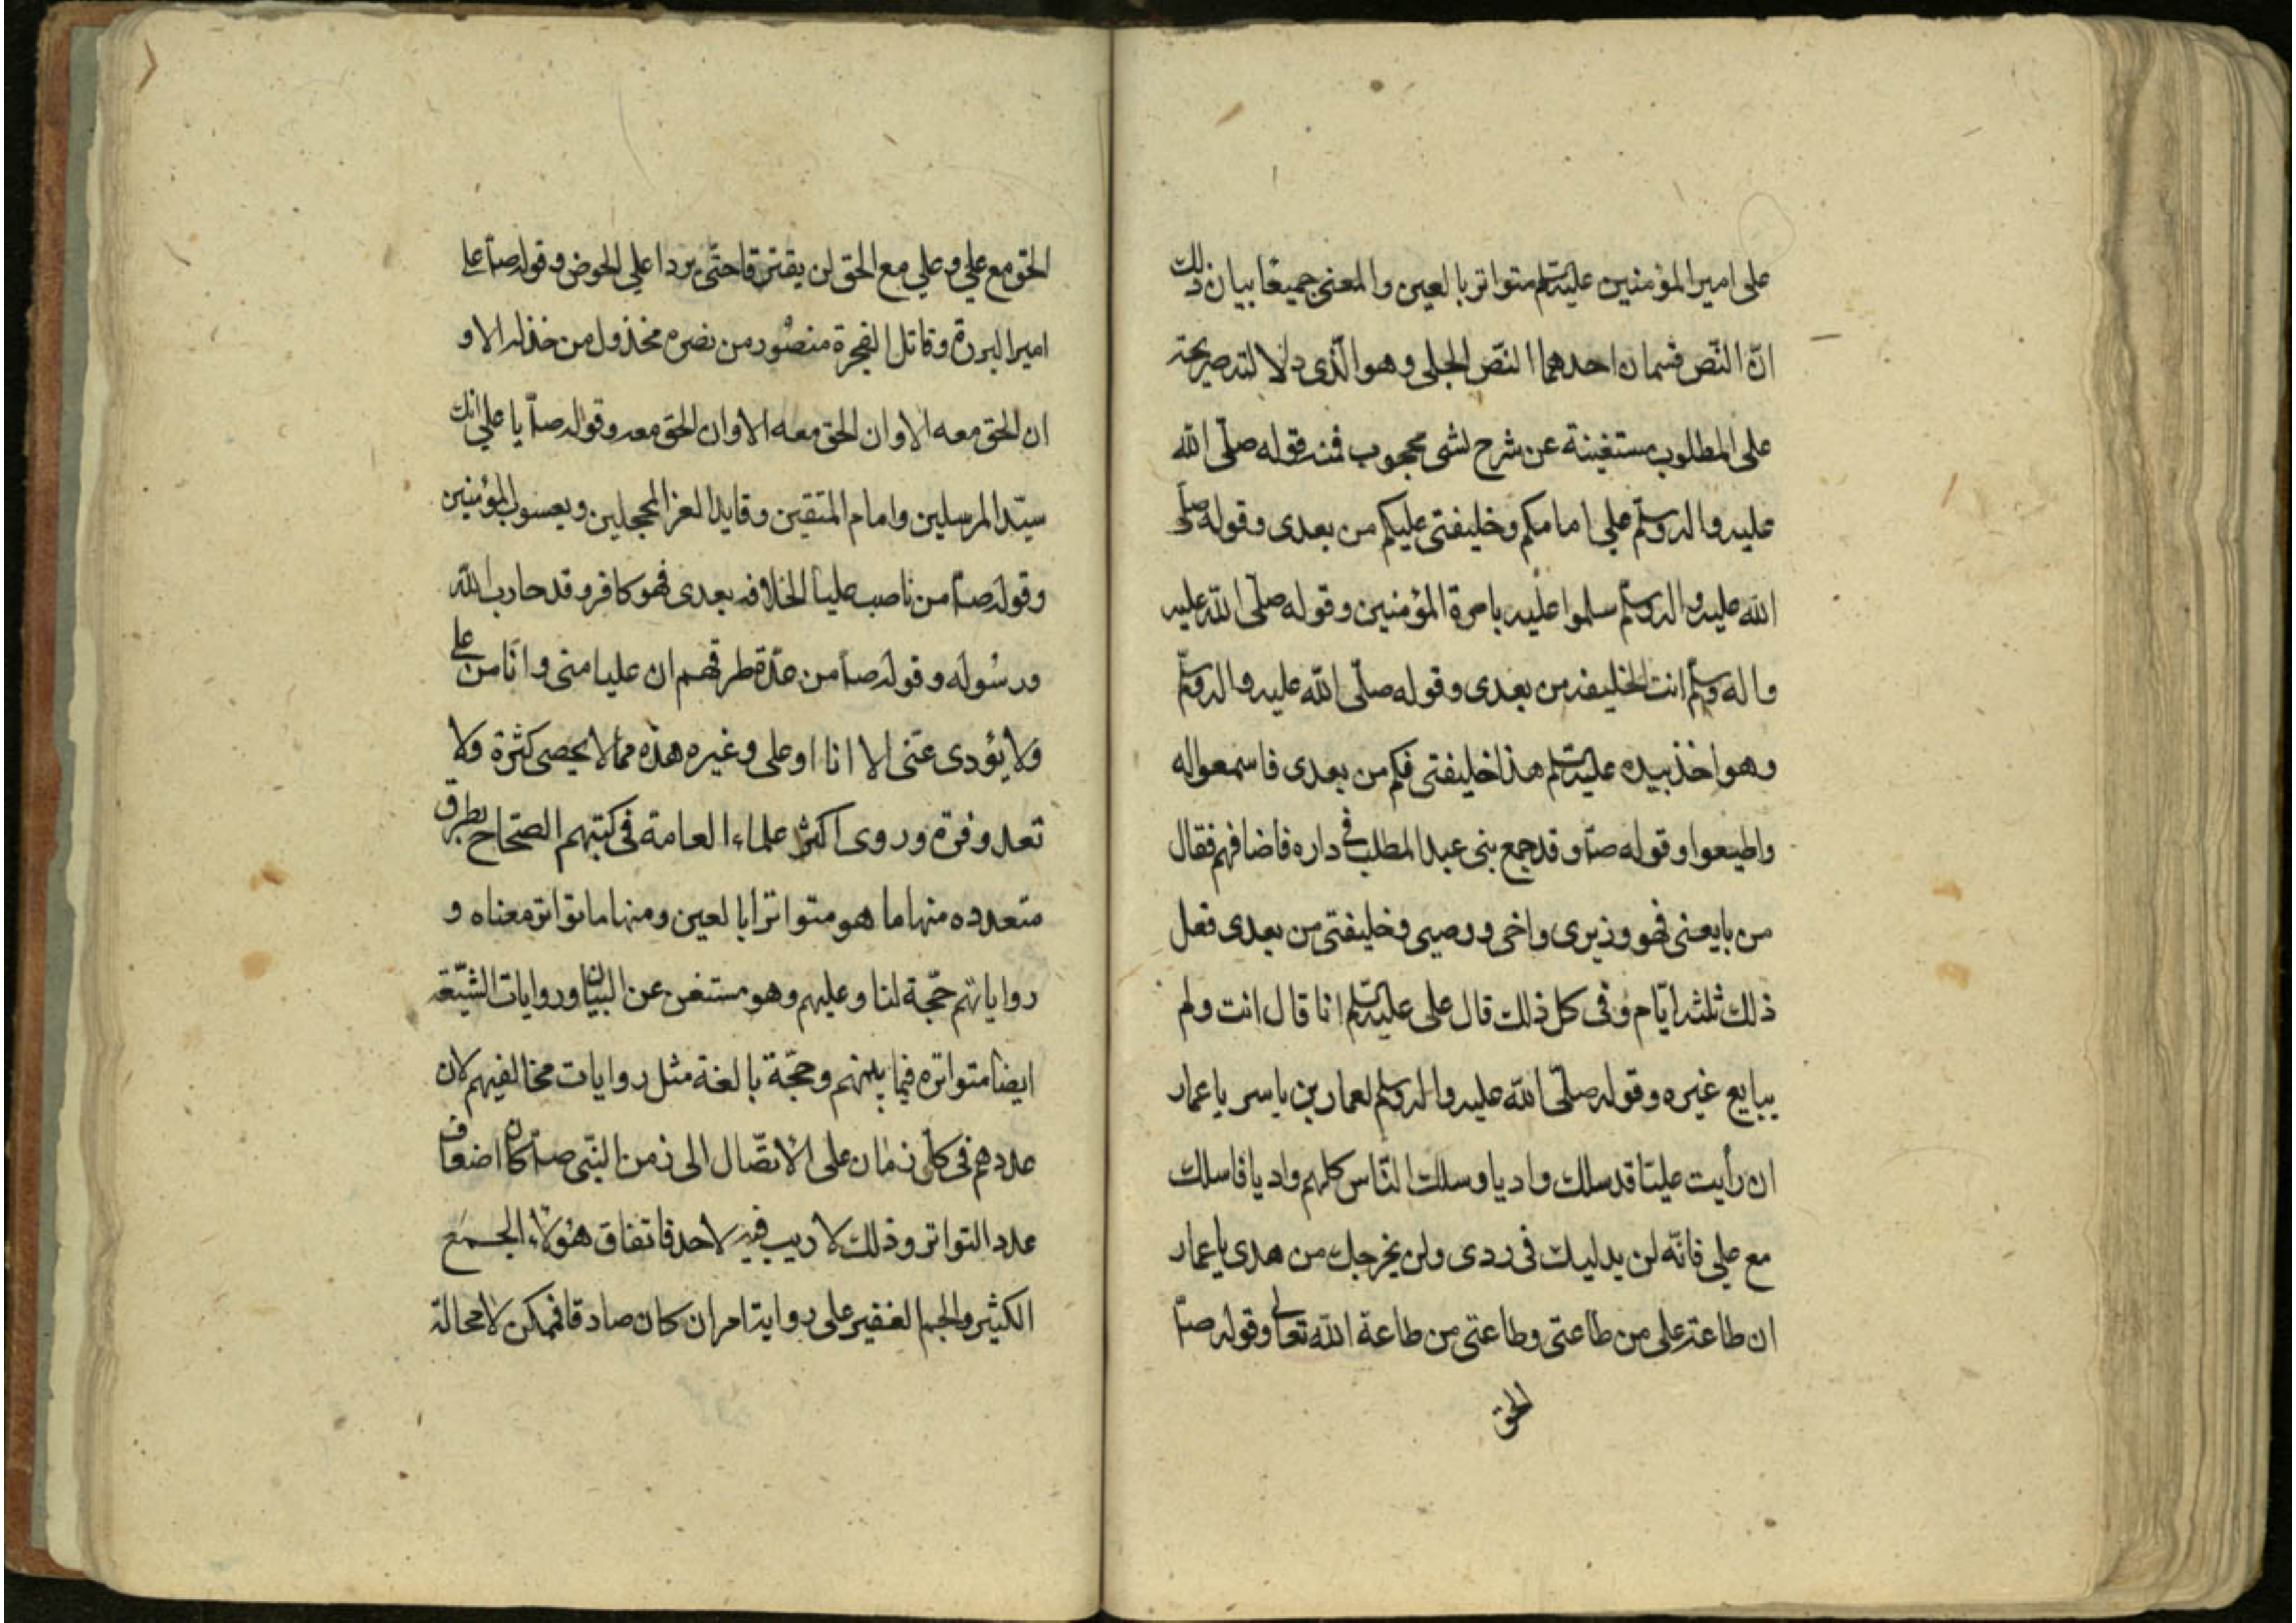 على امير المؤمنين عليه السلم متواتر بالعين والمعنى جميعًا بيان ذلك
انّ النّص قسمان احدهما النّص الجلى وهو الّذى دلالته صريحة
على المطلوب مستغنية عن شرح لشى محجوب فمنه قوله صلّى الله
عليه واله وسلّم علي امامكم وخليفتى عليكم من بعدى وقوله صلّى
الله عليه واله وسلّم سلموا عليه بامرة المؤمنين وقوله صلّى الله عليه
واله وسلّم انت الخليفه من بعدى وقوله صلّى الله عليه واله وسلّم
وهو اخذ بيده عليه السلم هذا خليفتى فيكم من بعدى فاسمعوا له
واطيعوا وقوله صآ وقد جمع بنى عبد المطلب فى داره فاضافهم فقال
من بايعنى فهو وزيرى واخى ووصيى وخليفتى من بعدى فعل
ذلك ثلثه ايّام وفى كل ذلك قال على عليه السلم انا قال انت ولم
يبايع غيره وقوله صلّى الله عليه واله وسلم لعمار بن ياسر يا عمار
ان رأيت عليّا قد سلك واديا وسلك النّاس كلهم واديا فاسلك
مع علي فانّه لن يدليك فى ردى ولن يخرجك من هدى يا عمار
ان طاعة على من طاعتى وطاعتى من طاعة الله تعالى وقوله صآ
الحق
الحق مع علي وعلي مع الحق لن يفترقا حتّى يردا علي الحوض وقوله صآ على
امير البررة وقاتل الفجرة منصور من نصره مخذول من خذله الا و
ان الحق معه الا وان الحق معه الا وان الحق معه وقوله صآ يا علي انك
سيّد المرسلين وامام المتقين وقايد الغر المحجلين ويعسوب المؤمنين
وقوله صآ من ناصب عليا الخلافه بعدى فهو كافر وقد حارب الله
ورسوله وقوله صآ من عدّة طرقهم ان عليا منى وانا من على
ولا يؤدى عنّى الا انا او على وغيره هذه مما لا يحصى كثرة ولا
تعد وفرة وروى اكثر علماء العامة فى كتبهم الصّحاح بطرق
متعدده منها ما هو متواترا بالعين ومنها ما تواتر معناه و
رواياتهم حجّة لنا وعليهم وهو مستغن عن البيان وروايات الشّيعة
ايضا متواتره فيما بينهم وحجّة بالغة مثل روايات مخالفيهم لان
عددهم فى كل زمان على الاتصّال الى زمن النّبى صآ كان اضعاف
عدد التواتر وذلك لا ريب فيه لاحد فاتفاق هؤلاء الجمع
الكثير والجم الغفير على رواية امر ان كان صادقا فممكن لا محالة